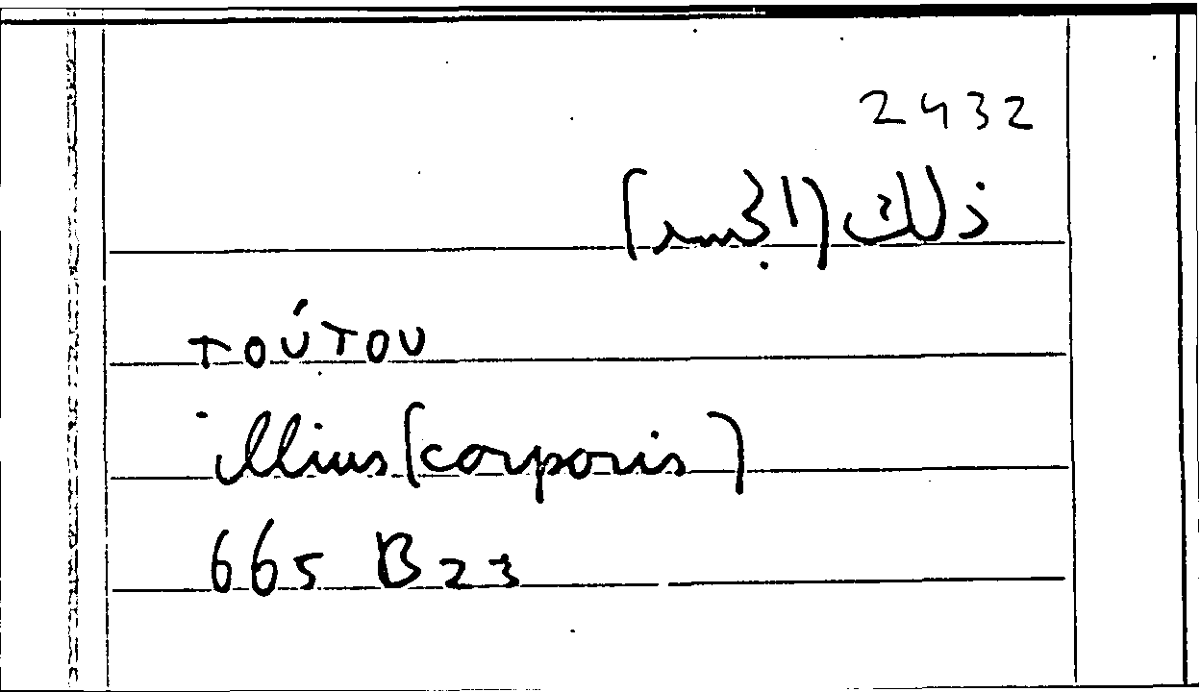 2432
ذلك (الجسد)
τούτου
illius (corporis)
665 B 23